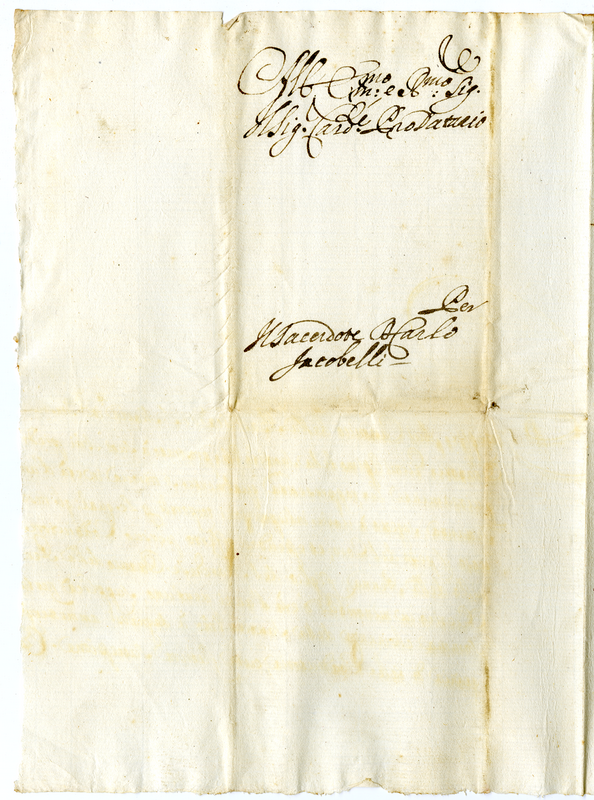 All' Em:mo e R:mo Sig.
Il Sig. Card:le ProDatario
Per
Il Sacerdote Carlo
Jacobelli